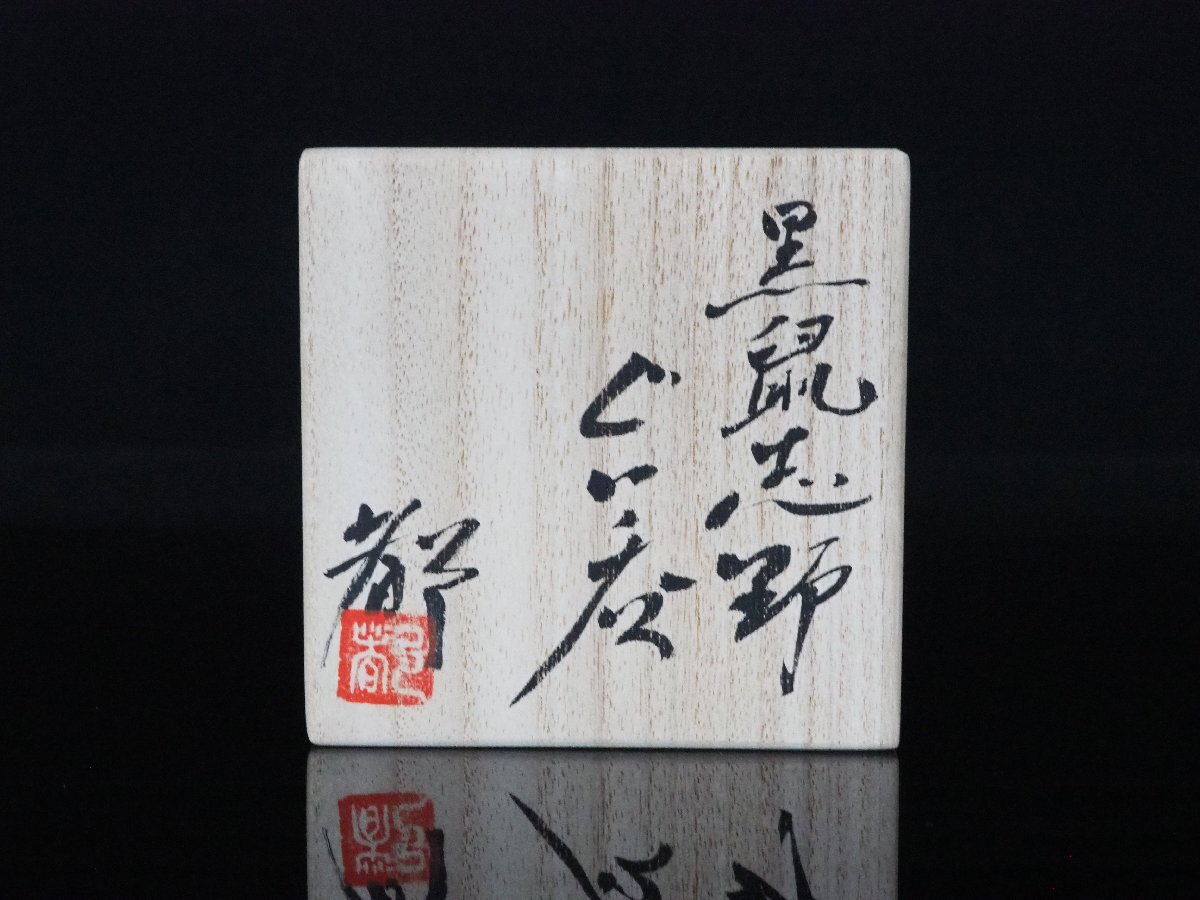 黒鼠志野
ぐい呑
都